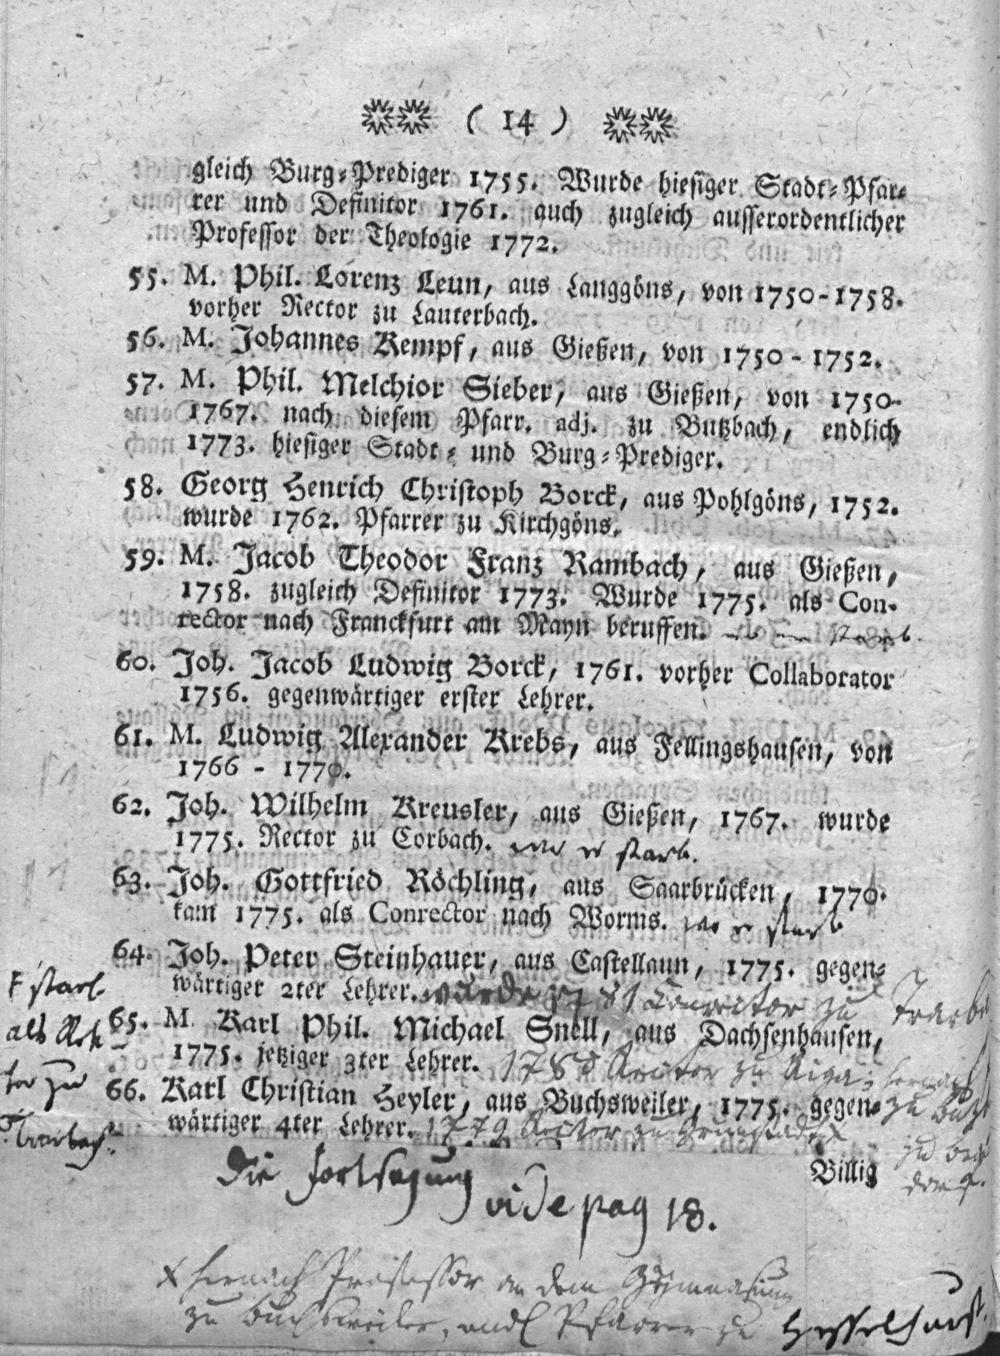 ( 14 )
gleich Burg-Prediger 1755. Wurde hiesiger Stadt-Pfar-
rer und Definitor 1761. auch zugleich ausserordentlicher
Professor der Theologie 1772.
55. M. Phil. Lorenz Leun, aus Langgöns, von 1750-1758.
vorher Rector zu Lauterbach.
56. M. Johannes Kempf, aus Gießen, von 1750 - 1752.
57. M. Phil. Melchior Sieber, aus Gießen, von 1750-
1767. nach diesem Pfarr. adj. zu Butzbach, endlich
1773. hiesiger Stadt- und Burg-Prediger.
58. Georg Henrich Christoph Borck, aus Pohlgöns, 1752.
wurde 1762. Pfarrer zu Kirchgöns.
59. M. Jacob Theodor Franz Rambach, aus Gießen,
1758. zugleich Definitor 1773. Wurde 1775. als Con-
rector nach Franckfurt am Mayn beruffen. wo er starb.
60. Joh. Jacob Ludwig Borck, 1761. vorher Collaborator
1756. gegenwärtiger erster Lehrer.
61. M. Ludwig Alexander Krebs, aus Fellingshausen, von
1766 - 1770.
62. Joh. Wilhelm Kreusler, aus Gießen, 1767. wurde
1775. Rector zu Corbach. wo er starb.
63. Joh. Gottfried Röchling, aus Saarbrücken, 1770.
kam 1775. als Conrector nach Worms. wo er starb
64. Joh. Peter Steinhauer, aus Castellaun, 1775. gegen-
wärtiger 2ter Lehrer. wurde 81 Conrector zu
starb
als
65. M. Karl Phil. Michael Snell, aus Dachsenhausen,
1775. jetziger 3ter Lehrer. 1780 Rector zu Riga; hernach
zu
66. Karl Christian Heyler, aus Buchsweiler, 1775. gegen-
wärtiger 4ter Lehrer. 1779 Rector zu Grünstadt x
Billig
Die Fortsezung
vide pag 18.
x hernach Professor an dem Gymnasium
zu Buchsweiler, und Pfarrer zu